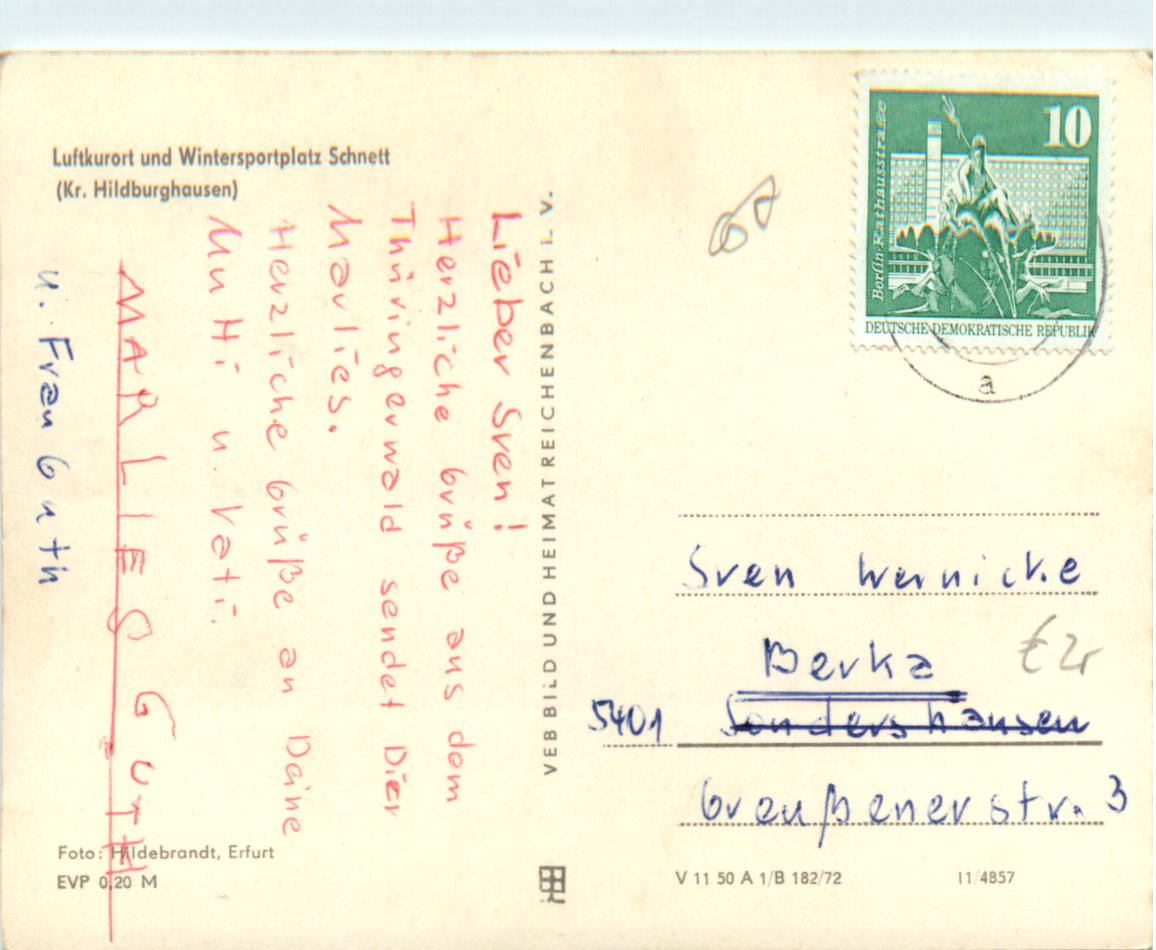 Luftkurort und Wintersportplatz Schnett
(Kr. Hildburghausen)
Lieber Sven!
Herzliche Grüße aus dem
Thüringerwald sendet Dier
Marlies.
Herzliche Grüße an Deine
Mu Hi u. Vati.
MARLIES GUTH
u. Frau Guth
Foto: Hildebrandt, Erfurt
EVP 0,20 M
VEB BILD UND HEIMAT REICHENBACH i. V.
10
Berlin-Rathausstraße
DEUTSCHE DEMOKRATISCHE REPUBLIK
a
Sven Wernicke
Berka
5401 Sondershausen
Greußener str. 3
€ 2,-
V 11 50 A 1/B 182/72
11/4857